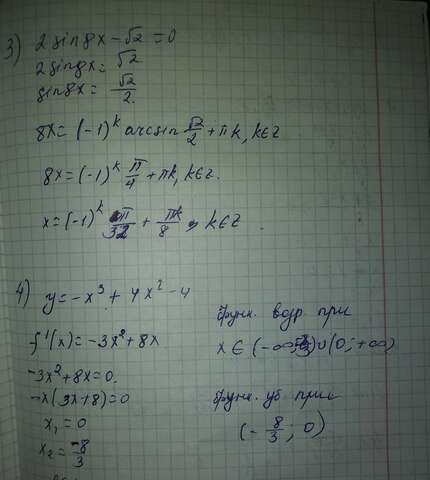 3) 2 sin 8x - √2 = 0
2 sin 8x = √2
sin 8x = √2/2.
8x = (-1)^k arcsin √2/2 + πk, k∈z
8x = (-1)^k π/4 + πk, k∈z.
x = (-1)^k π/32 + πk/8, k∈z.
4) y = -x³ + 4x² - 4
f'(x) = -3x² + 8x
-3x² + 8x = 0.
-x(3x+8) = 0
x₁ = 0
x₂ = -8/3
функ. возр при
x ∈ (-∞; ) ∪ (0; +∞)
функ. уб при
(-8/3; 0)